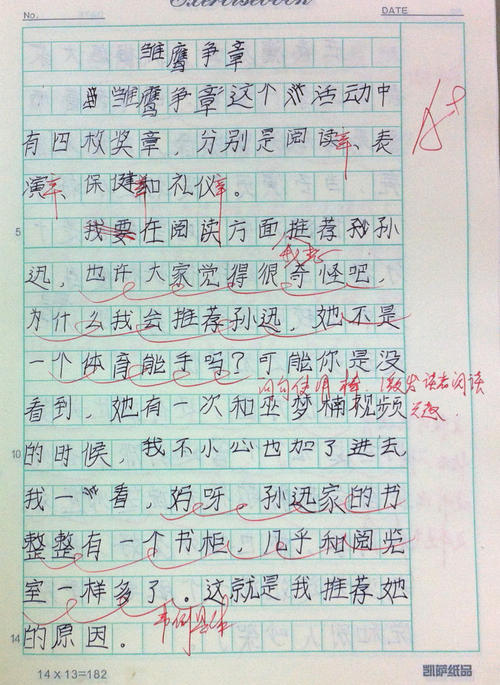 Exercisebook
No. DATE
雏鹰争章
雏鹰争章这个活动中
有四枚奖章，分别是阅读章、表
演章、保健章和礼仪章。
在阅读方面推荐孙
我要
迅，也许大家觉得很奇怪吧，
为什么我会推荐孙迅，她不是
一个体育能手吗？可能你是没
激发读者阅读
看到，她有一次和巫梦楠视频
兴趣.
的时候，我不小心也加了进去
我一看，妈呀，孙迅家的书
整整有一个书柜，几乎和阅览
室一样多了。这就是我推荐她
事例具体
的原因。
A+
5
10
14
14×13=182
凯萨纸品